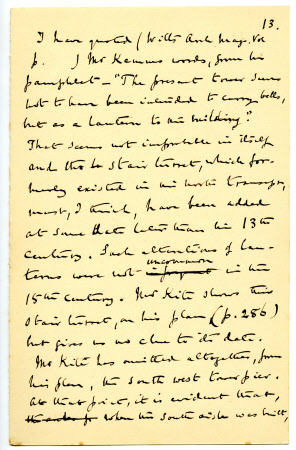 13.
I have quoted (Wilts Arch Mag. Vol
p.    ) Mr Kemms words, from his
pamphlet – "The present tower seems
not to have been intended to carry bells,
but as a lantern to the building".
That seems not improbable in itself
and the stair turret, which for-
merly existed in the north transept,
must, I think, have been added
at some date later than the 13th
century. Such alterations of lan-
uncommon
terns were not infrequent in the
15th century. Mr Kite shows this
stair turret, on his plan (p. 286)
but gives us no clue to its date.
Mr Kite has omitted altogether, from
his plan, the south west tower pier.
At that point, it is evident that,
when the south aisle was built,